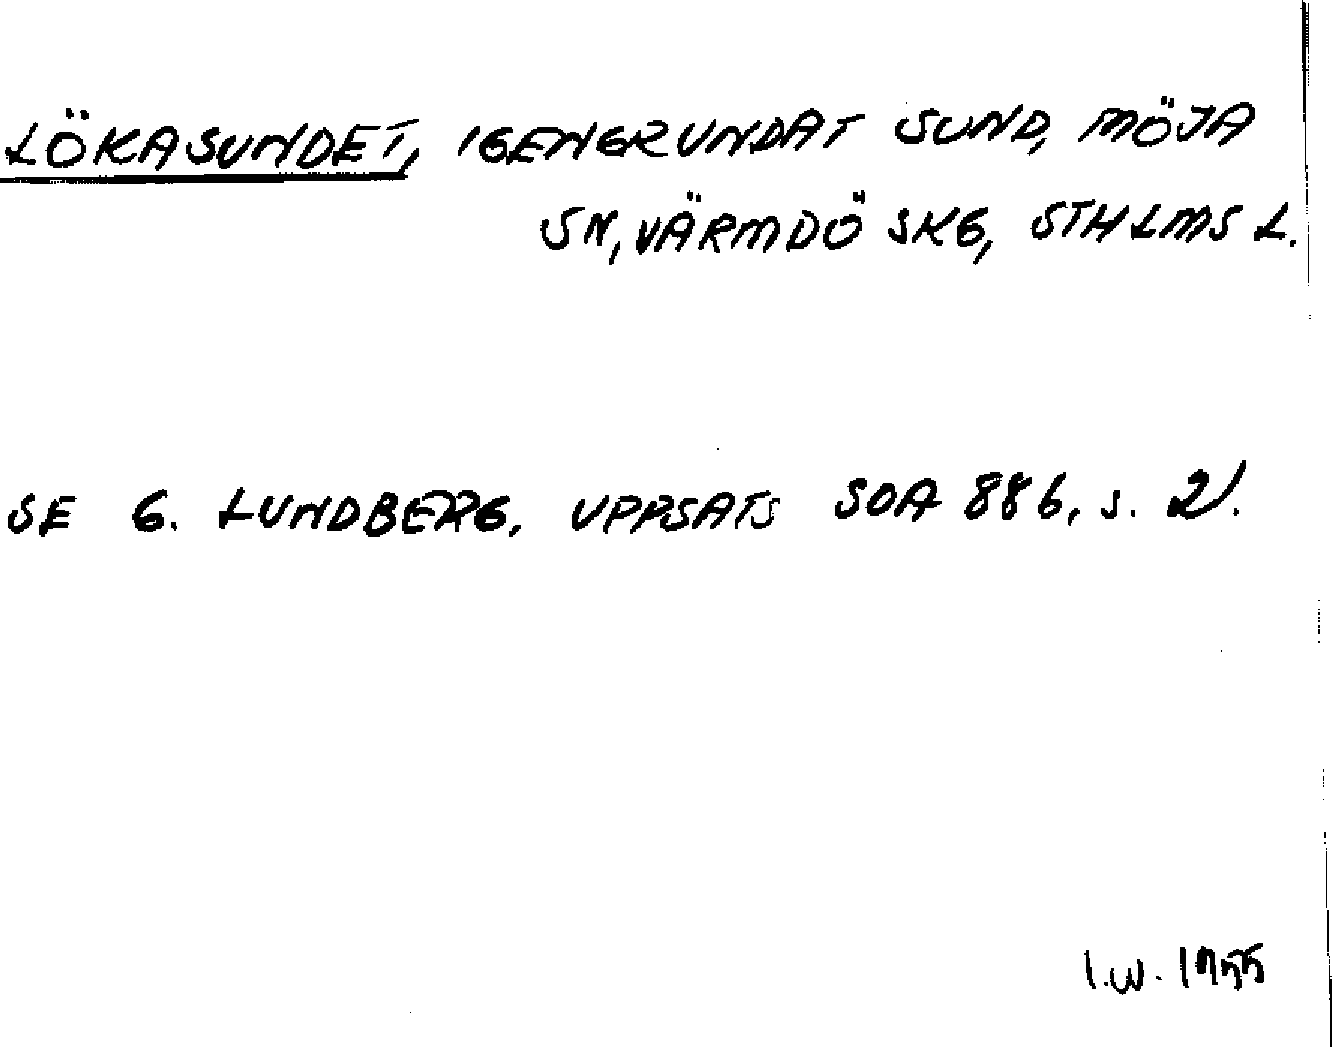 LÖKASUNDET, IGENGRUNDAT SUND, MÖJA
SN, VÄRMDÖ SKG, STHLMS L.
SE G. LUNDBERG, UPPSATS SOA 886, s. 21.
I.W. 1955